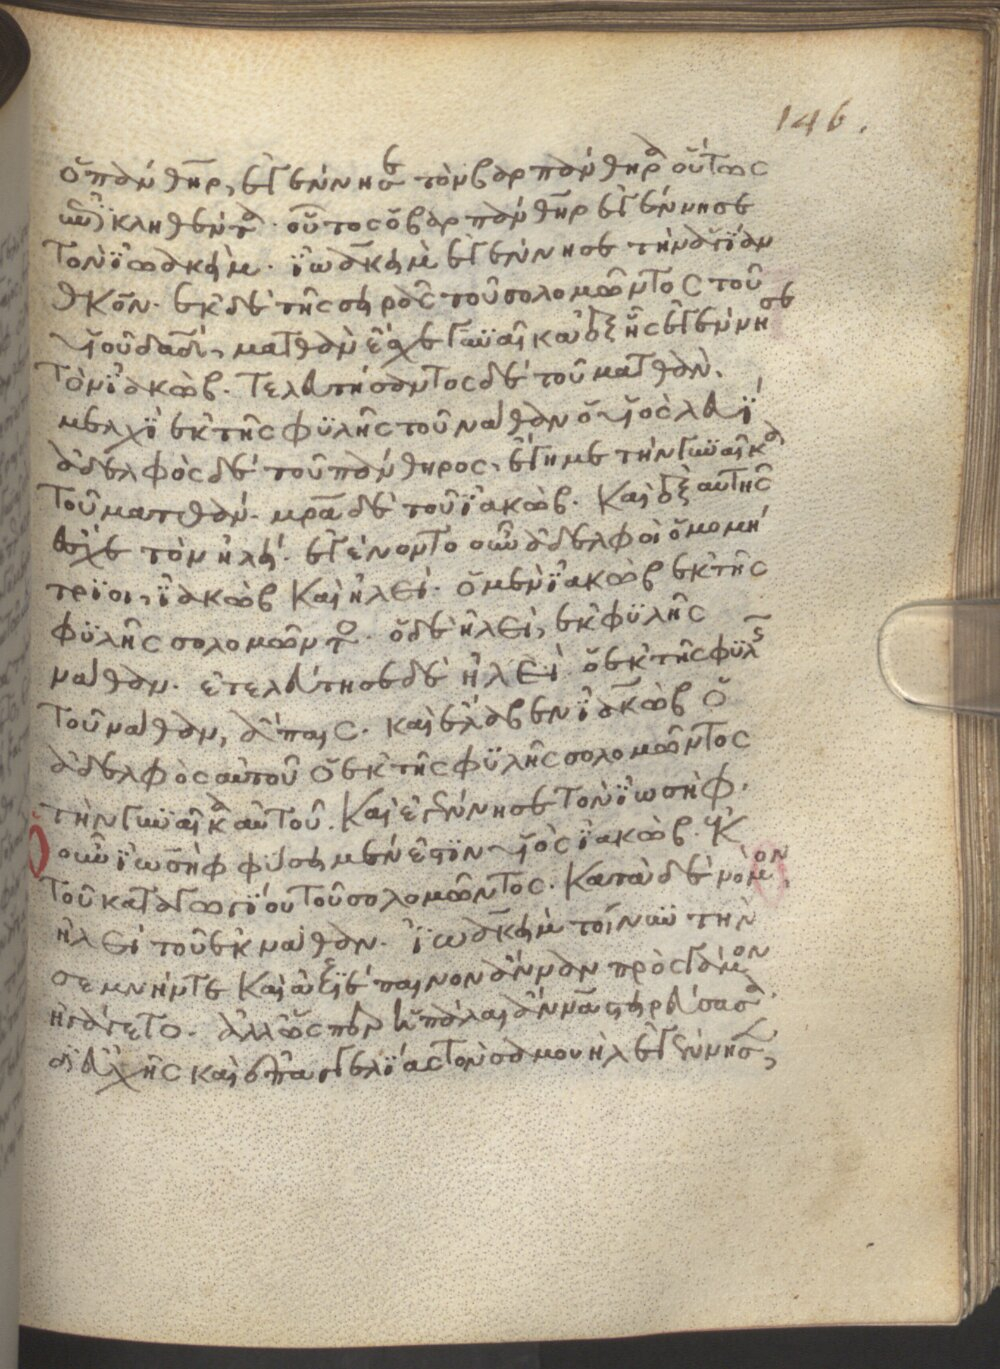 146.
ὁ πάνθηρ, ἐγέννησε τὸν βαρπάνθηρα οὕτως
κληθέντα. οὗτος ὁ βαρπάνθηρ ἐγέννησε
τὸν ϊωακεὶμ. ϊωακεὶμ ἐγέννησε τὴν ἁγίαν
θκον. ἐκ δὲ τῆς σειρᾶς τοῦ σολομῶντος τοῦ
υἱοῦ δαδ, ματθὰν ἔσχε γυναῖκα ἐξ ἧς ἐγέννησε
τὸν ϊακὼβ. τελευτήσαντος δὲ τοῦ ματθὰν.
μελχὶ ἐκ τῆς φυλῆς τοῦ ναθαν ὁ υἱὸς λευῒ
ἀδελφὸς δὲ τοῦ πάνθηρος, ἔγημε τὴν γυναῖκα
τοῦ ματθάν. μρα δὲ τοῦ ϊακὼβ. καὶ ἐξ αὐτῆς
ἔσχε τὸν ἡλεί. ἐγένοντο οὖν ἀδελφοὶ ὁμομή
τριοι, ϊακὼβ καὶ ἡλεί. ὁ μὲν ϊακὼβ ἐκ τῆς
φυλῆς σολομῶντος. ὁ δὲ ἡλεί, ἐκ φυλῆς
ναθαν. ἐτελεύτησε δὲ ἡλεί ὁ ἐκ τῆς φυλῆς
τοῦ ναθαν, ἄπαις. καὶ ἔλαβεν ϊακὼβ ὁ
ἀδελφὸς αὐτοῦ ὁ ἐκ τῆς φυλῆς σολομῶντος
τὴν γυναῖκα αὐτοῦ. καὶ ἐγέννησε τὸν ϊωσὴφ.
ὁ οὖν ϊωσὴφ φύσει μέν ἐστιν υἱὸς ϊακὼβ.
τοῦ κατάγοντος τοῦ σολομῶντος. κατὰ δὲ νόμον,
ἡλεὶ τοῦ ἐκ ναθαν. ϊωακεὶμ τοίνυν τὴν
σεμνήν τε καὶ ἀξιέπαινον ἄνναν πρὸς γάμον
ἠγάγετο. ἀλλ' ὥσπερ ἡ πάλαι ἄννα στειρεύσασα
δι' εὐχῆς καὶ ἐπαγγελίας τὸν σαμουὴλ ἐγέννησεν,